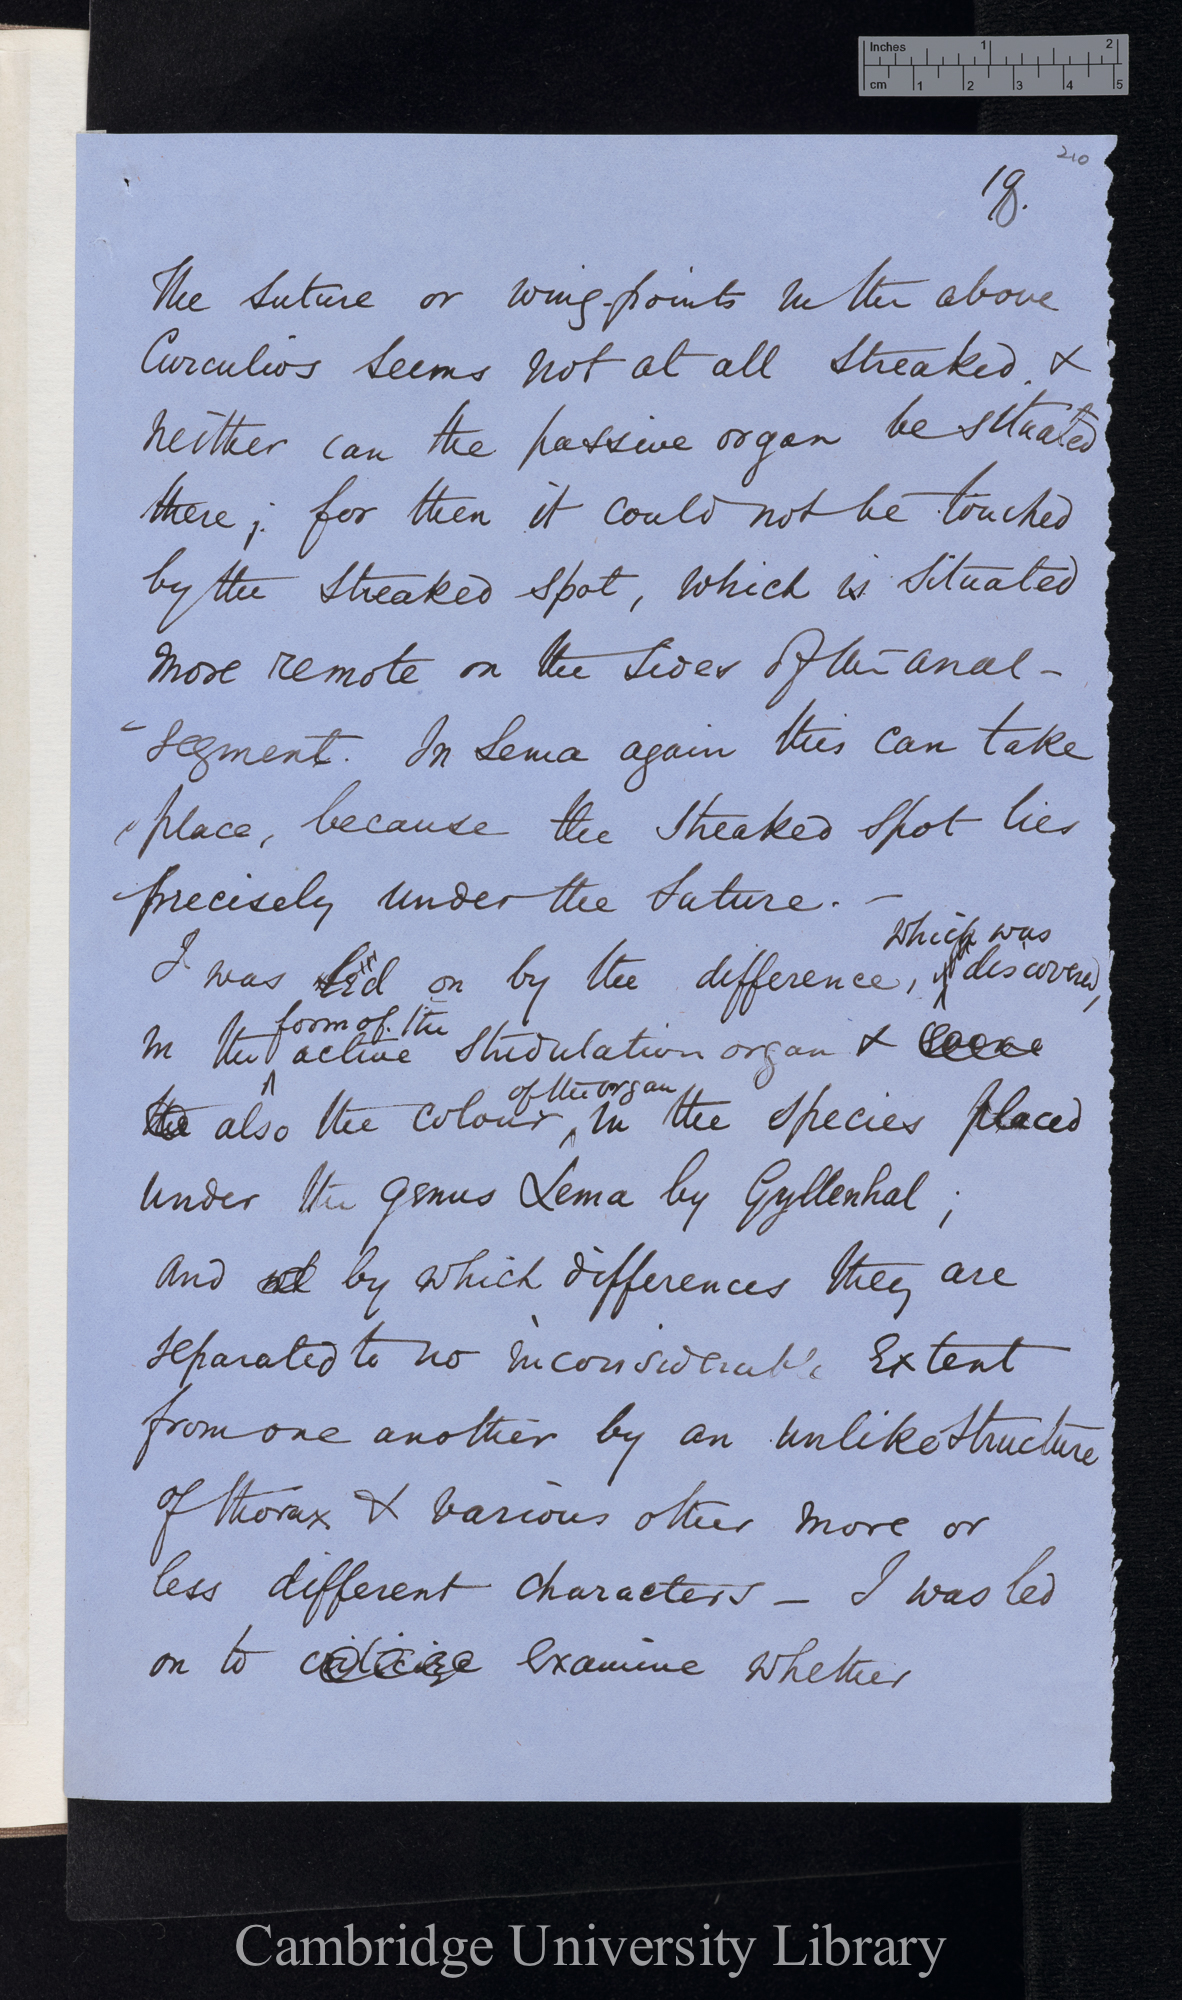 Inches 1 2
cm 1 2 3 4 5
210
18.
The suture or wing-points in the above
Curculios seems not at all streaked, &
neither can the passive organ be situated
there; for then it could not be touched
by the streaked spot, which is situated
more remote on the sides of the anal-
segment. In Lema again this can take
place, because the streaked spot lies
precisely under the suture. -
which was
I was led on by the difference, discovered,
form of the
in the active stridulation organ &
of the organ
also the colour, in the species placed
under the genus Lema by Gyllenhal;
and by which differences they are
separated to no inconsiderable extent
from one another by an unlike structure
of thorax & various other more or
less different characters - I was led
on to criticize examine whether
Cambridge University Library